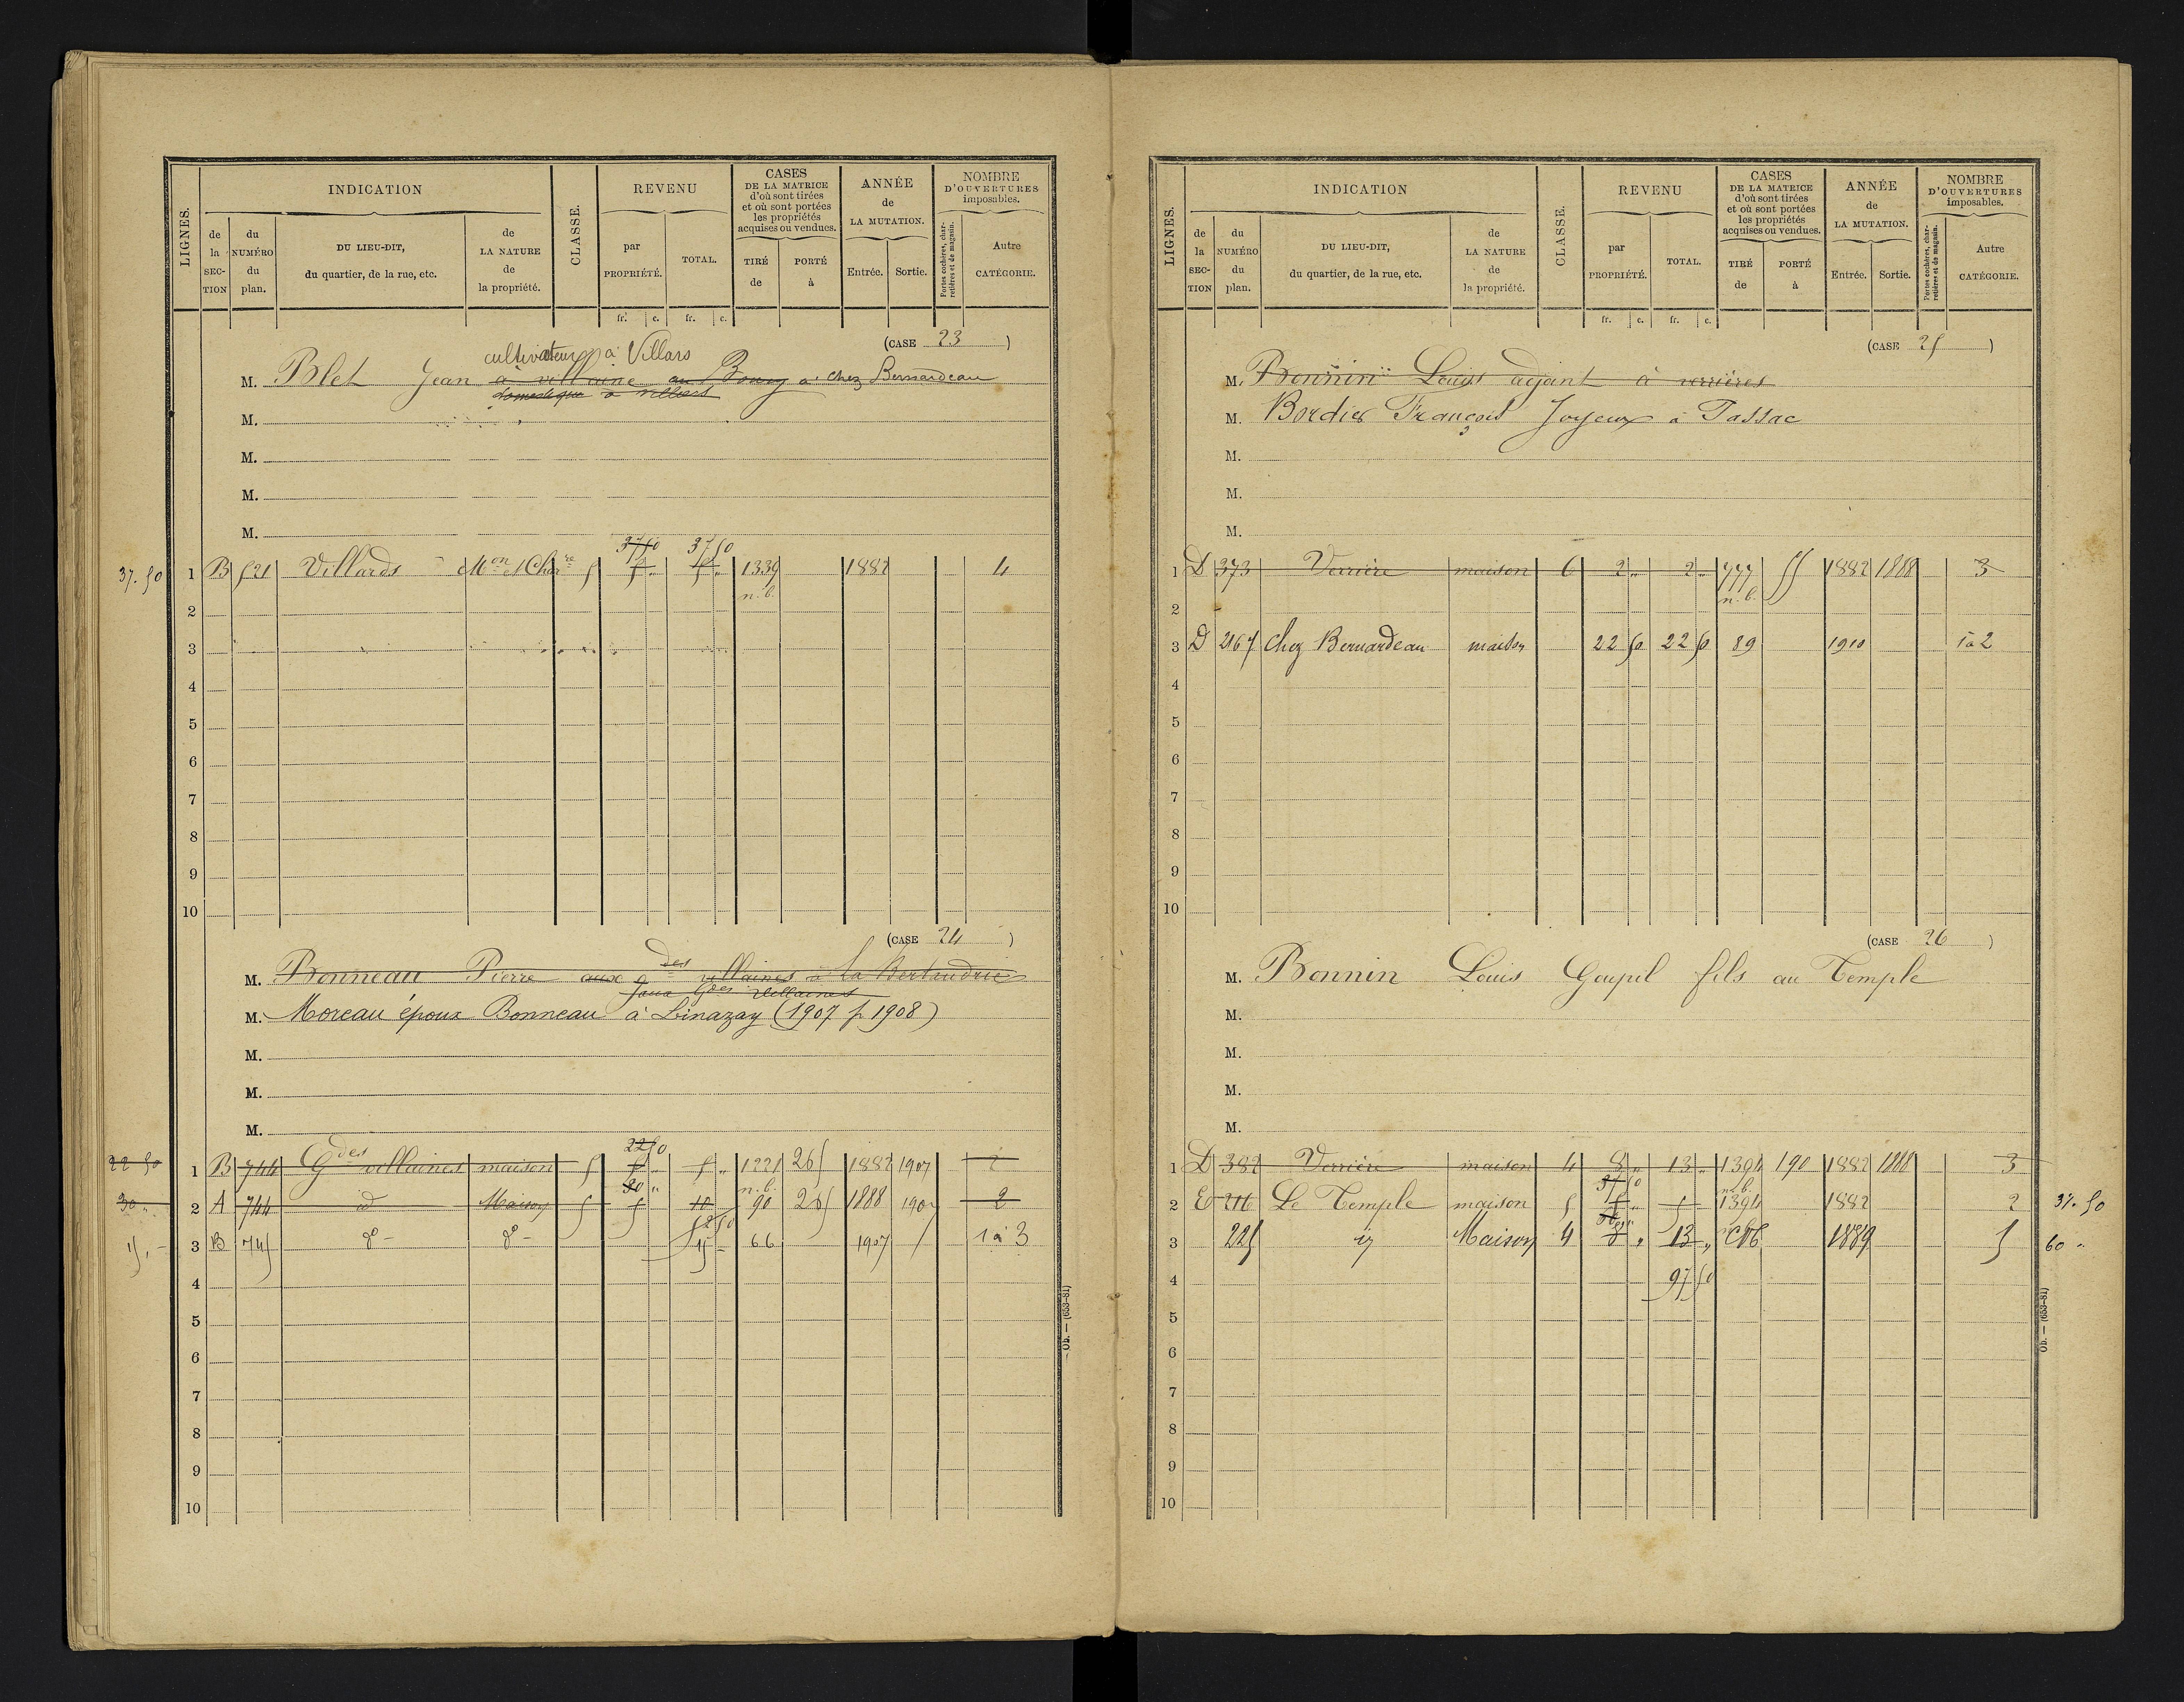 LIGNES.
INDICATION
de la SECTION
du NUMÉRO du plan.
DU LIEU-DIT, du quartier, de la rue, etc.
de LA NATURE de la propriété.
CLASSE.
REVENU
par PROPRIÉTÉ.
TOTAL.
CASES DE LA MATRICE d'où sont tirées et où sont portées les propriétés acquises ou vendues.
TIRÉ de
PORTÉ à
ANNÉE de LA MUTATION.
Entrée.
Sortie.
NOMBRE D'OUVERTURES imposables.
Portes cochères, charretières et de magasin.
Autre CATÉGORIE.
fr. c. fr. c.
(CASE 23)
cultivateur à Villars
M. Blet Jean à villaine au Bourg à chez Bernardeau
domestique à villars
M.
M.
M.
M.
37 50 37 50
37.50 1 B 521 Villards Mon et Chre 5 5 " 5 " 1339 1882 4
n.b.
2
3
4
5
6
7
8
9
10
(CASE 24)
M. Bonneau Pierre aux gdes villaines à la Bertaudrie
aux Gdes Villaines
M. Moreau époux Bonneau à Linazay (1907 p. 1908)
M.
M.
M.
22 50
22 50 1 B 744 Gdes villaines maison 5 5 " 5 " 1221 265 1882 1907 2
30 " n.b.
30 " 2 A 744 id Maison 5 5 10 90 265 1888 1907 2
52 50
15 . - 3 B 745 do - do - 15 - 66 1907 1 à 3
4
5
6
7
8
9
10
Ob. — (653-81)
LIGNES.
INDICATION
de la SECTION
du NUMÉRO du plan.
DU LIEU-DIT, du quartier, de la rue, etc.
de LA NATURE de la propriété.
CLASSE.
REVENU
par PROPRIÉTÉ.
TOTAL.
CASES DE LA MATRICE d'où sont tirées et où sont portées les propriétés acquises ou vendues.
TIRÉ de
PORTÉ à
ANNÉE de LA MUTATION.
Entrée.
Sortie.
NOMBRE D'OUVERTURES imposables.
Portes cochères, charretières et de magasin.
Autre CATÉGORIE.
fr. c. fr. c.
(CASE 25)
M. Bonnin Louis adjoint à verrières
M. Bordier François Joyeux à Passac
M.
M.
M.
1 D 373 Verrière maison 6 2 " 2 " 777 55 1882 1888 3
n.b.
2
3 D 2167 Chez Bernardeau maison 22 50 22 50 89 1910 1 à 2
4
5
6
7
8
9
10
(CASE 26)
M. Bonnin Louis Goupil fils au Temple
M.
M.
M.
M.
1 D 382 Verrière maison 4 8 " 13 " 1394 190 1882 1888 3
37 50 n.b.
2 E 216 Le Temple maison 5 5 " 5 1394 1882 2 37.50
60 "
3 225 id Maison 4 8 " 13 " 1889 5 60 "
4 97 50
5
6
7
8
9
10
Ob. — (653-81)